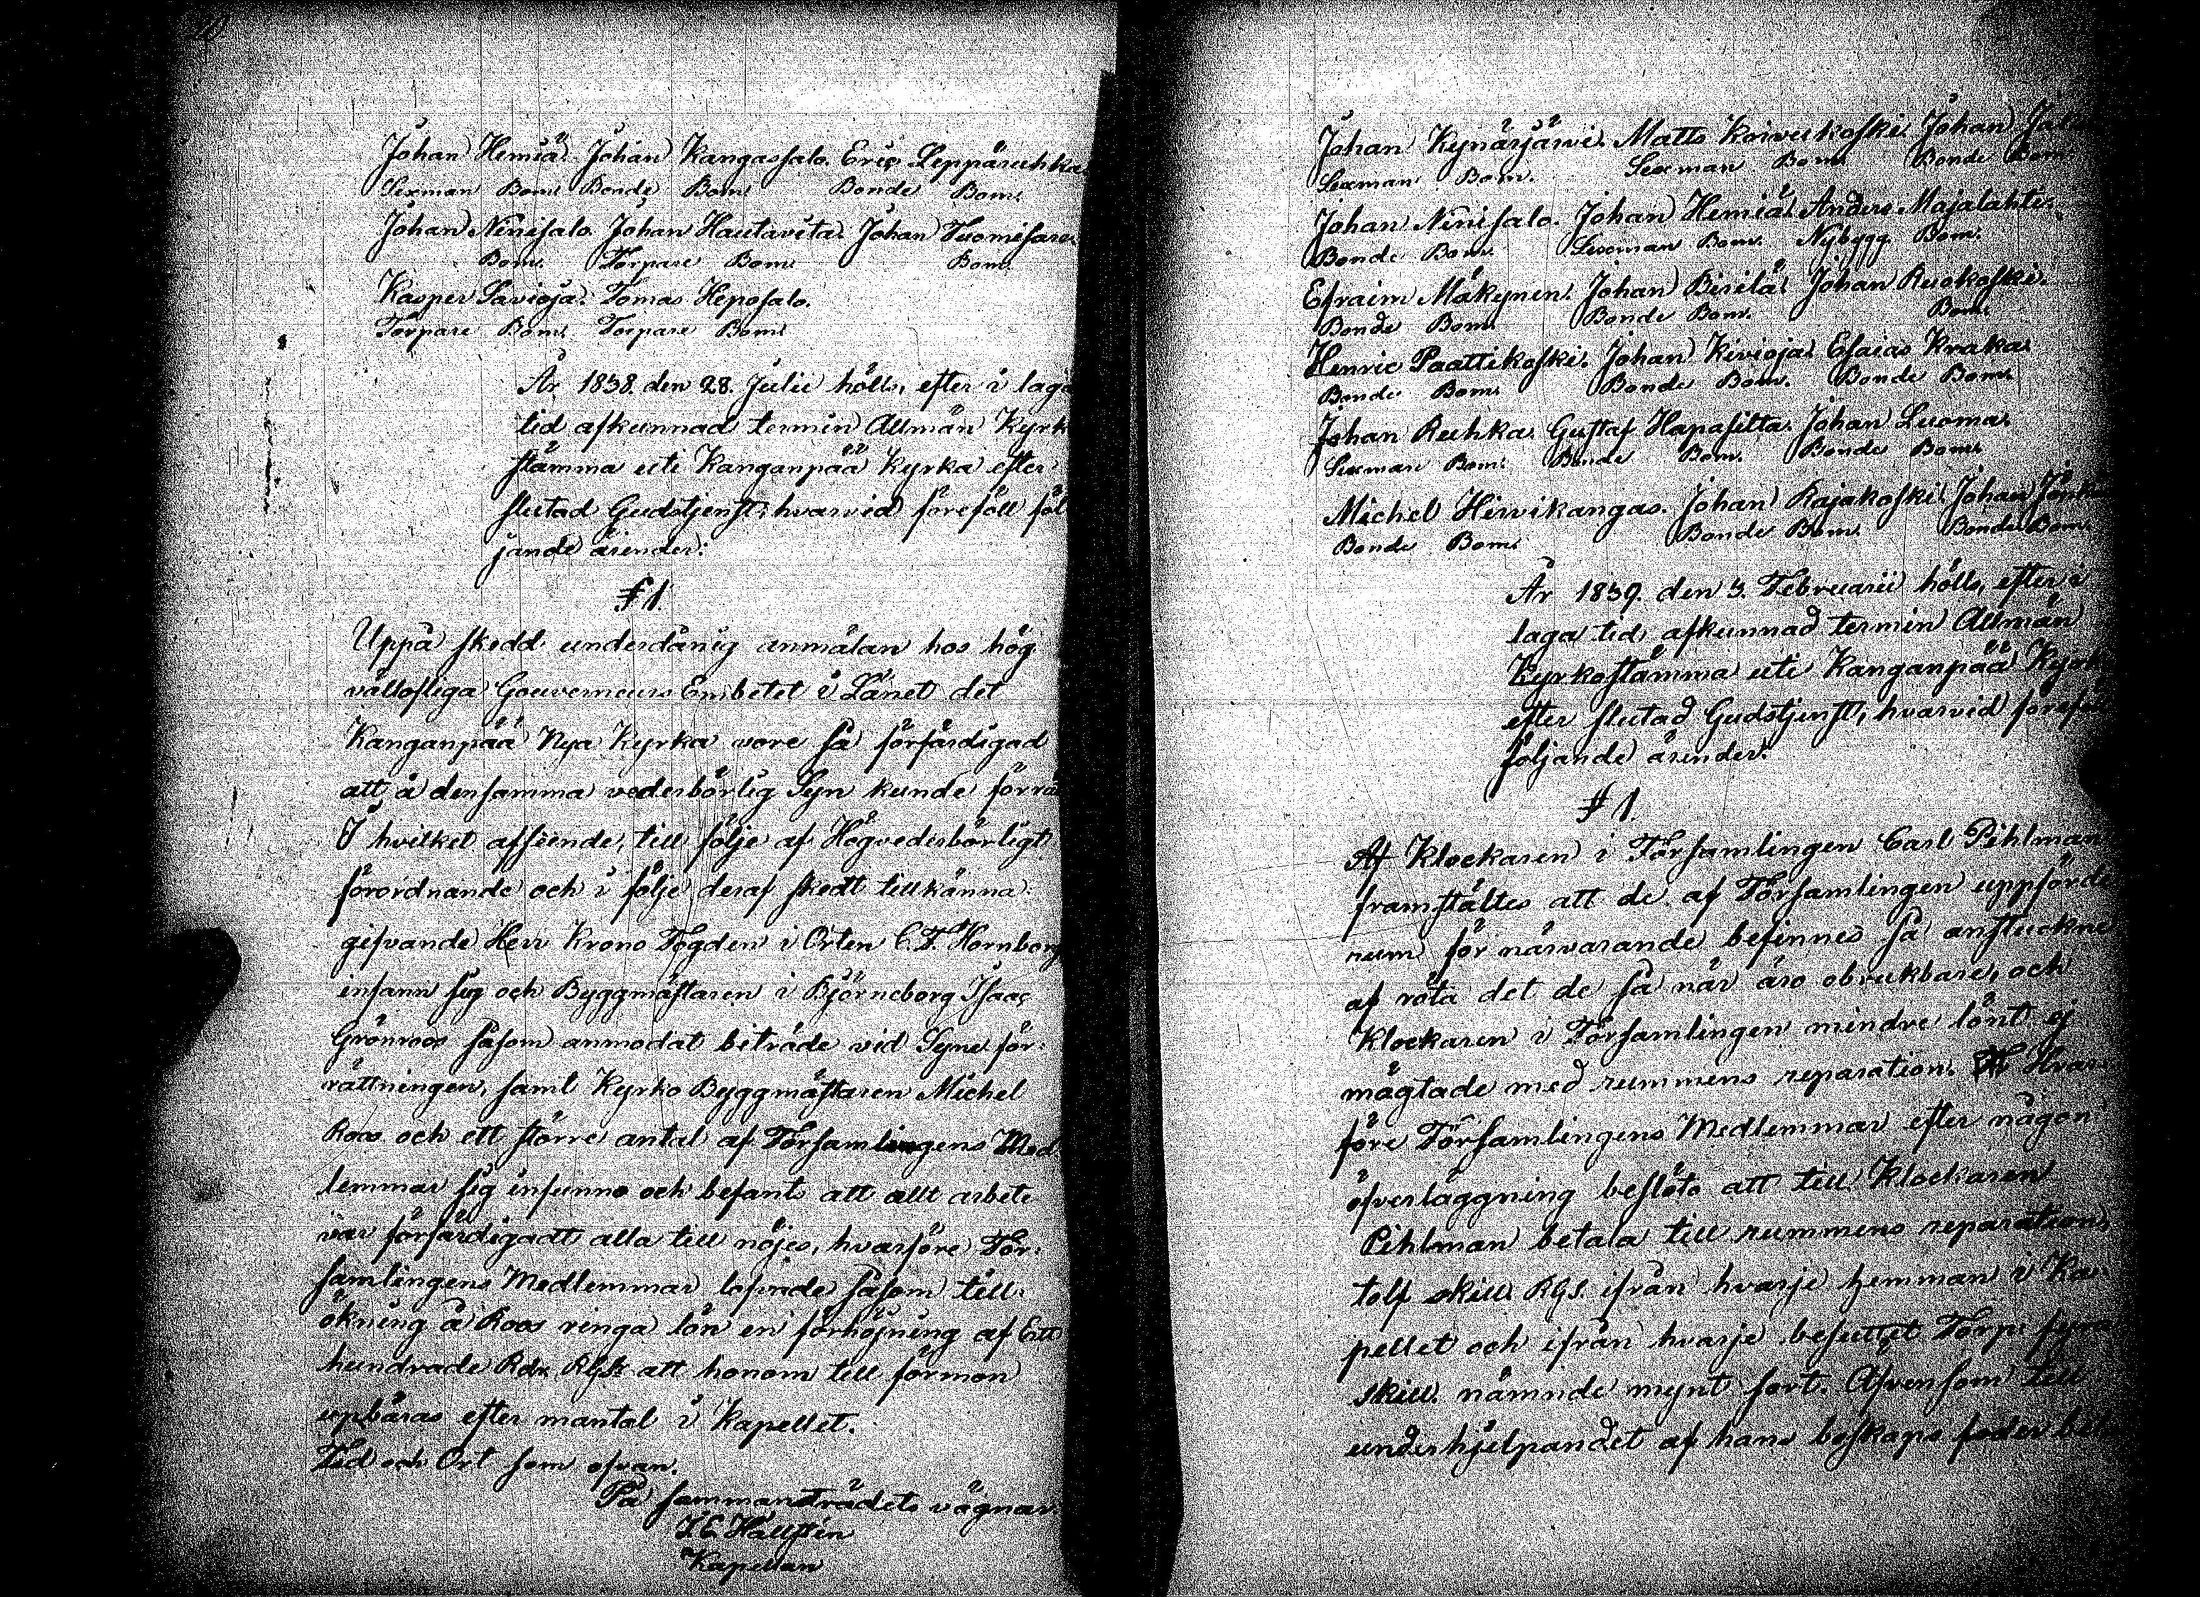 Johan Hemiä. Johan Kangassalo. Eric Leppäruhka
Sexman Bom. Bonde Bom. Bonde Bom.
Johan Ninisalo. Johan Hautavita. Johan Tuomisare
Bom. Torpare Bom. Bom.
Kasper Savioja. Tomas Heposalo.
Torpare Bom. Torpare Bom.
År 1838. den 28. Julii hölls, efter i laga
tid afkunnad termin Allmän Kyrk
stämma uti Kanganpää Kyrka efter
slutad Gudstjenst, hvarvid föreföll föl
jande ärender:
§ 1.
Uppå skedd underdånig anmälan hos hög
vällofliga Gouverneurs Embetet i Länet det
Kanganpää Nya Kyrka vore så förfärdigad
att å densamma vederbörlig Syn kunde förrät
I hvilket afseende, till följe af Högvederbörligt
förordnande och i följe deraf skedt tillkänna
gifvande Herr Krono Fogden i Orten C. F. Hornborg
infann sig och Byggmästaren i Björneborg Isaac
Grönroos såsom anmodat biträde vid Syne för-
rättningen, samt Kyrko Byggmästaren Michel
Roos och ett större antal af Församlingens Med
lemmar sig infunno och befants att allt arbete
var förfärdigadt alla till nöjes, hvarföre För-
samlingens Medlemmar lofvade såsom till-
ökning å Roos ringa lön en förhöjning af Ett
hundrade Rdr RGs att honom till förmon
upbäras efter mantal i Kapellet.
Tid och Ort som ofvan.
På sammanträdets vägnar
J. E. Hällsten
Kapellan
Johan Kynäsjärvi. Matts Koivukoski. Johan
Sexman Bom. Sexman Bom. Bonde Bom.
Johan Ninisalo. Johan Hemiä. Anders Majalahti.
Bonde Bom. Sexman Bom. Nybygg. Bom.
Efraim Mäkynen. Johan Birilä. Johan Ruokoski.
Bonde Bom. Bonde Bom. Bom.
Henric Paattikoski. Johan Kivioja. Esaias Kraka.
Bonde Bom. Bonde Bom. Bonde Bom.
Johan Ruhka. Gustaf Hapasilta. Johan Luoma.
Sexman Bom. Bonde Bom. Bonde Bom.
Michel Hirvikangas. Johan Rajakoski. Johan
Bonde Bom. Bonde Bom. Bonde Bom.
År 1839. den 3. Februarii hölls, efter i
laga tid, afkunnad termin Allmän
Kyrkostämma uti Kanganpää Kyrk
efter slutad Gudstjenst, hvarvid föreföll
följande ärender:
§ 1.
Af Klockaren i Församlingen Carl Pihlman
framstältes att de af Församlingen uppförde
rum för närvarande befinnes så anstuckne
af röta det de så när äro obrukbare, och
Klockaren i Församlingen mindre lönt ej
mägtade med rummens reparation. Hvar
före Församlingens Medlemmar efter någon
öfverläggning beslöto att till Klockaren
Pihlman betala till rummens reparation
tolf skill. RGs. ifrån hvarje hemman i Ka-
pellet och ifrån hvarje besuttet Torp fyra
skill. nämnde mynt sort. Äfvensom till
underhjelpandet af hans boskaps foder